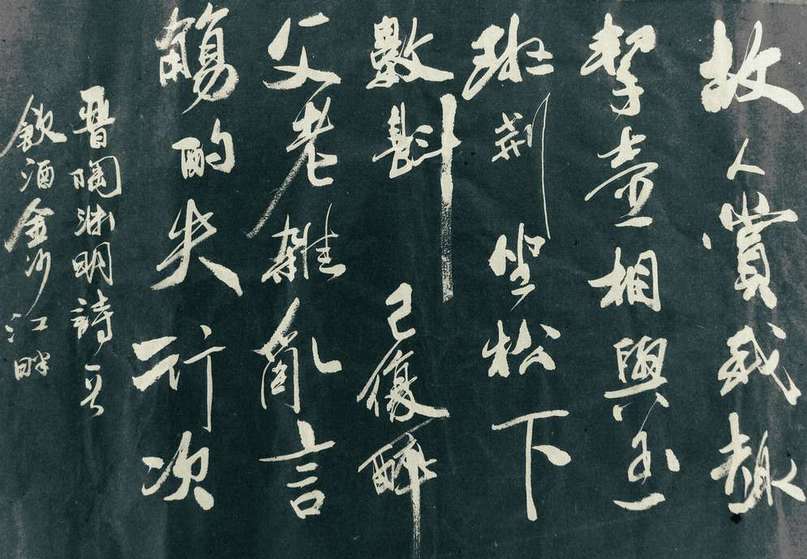 故人賞我趣
挈壺相與至
班荊坐松下
數斟已復醉
父老雜亂言
觴酌失行次
晋陶渊明詩
飲酒金沙江畔